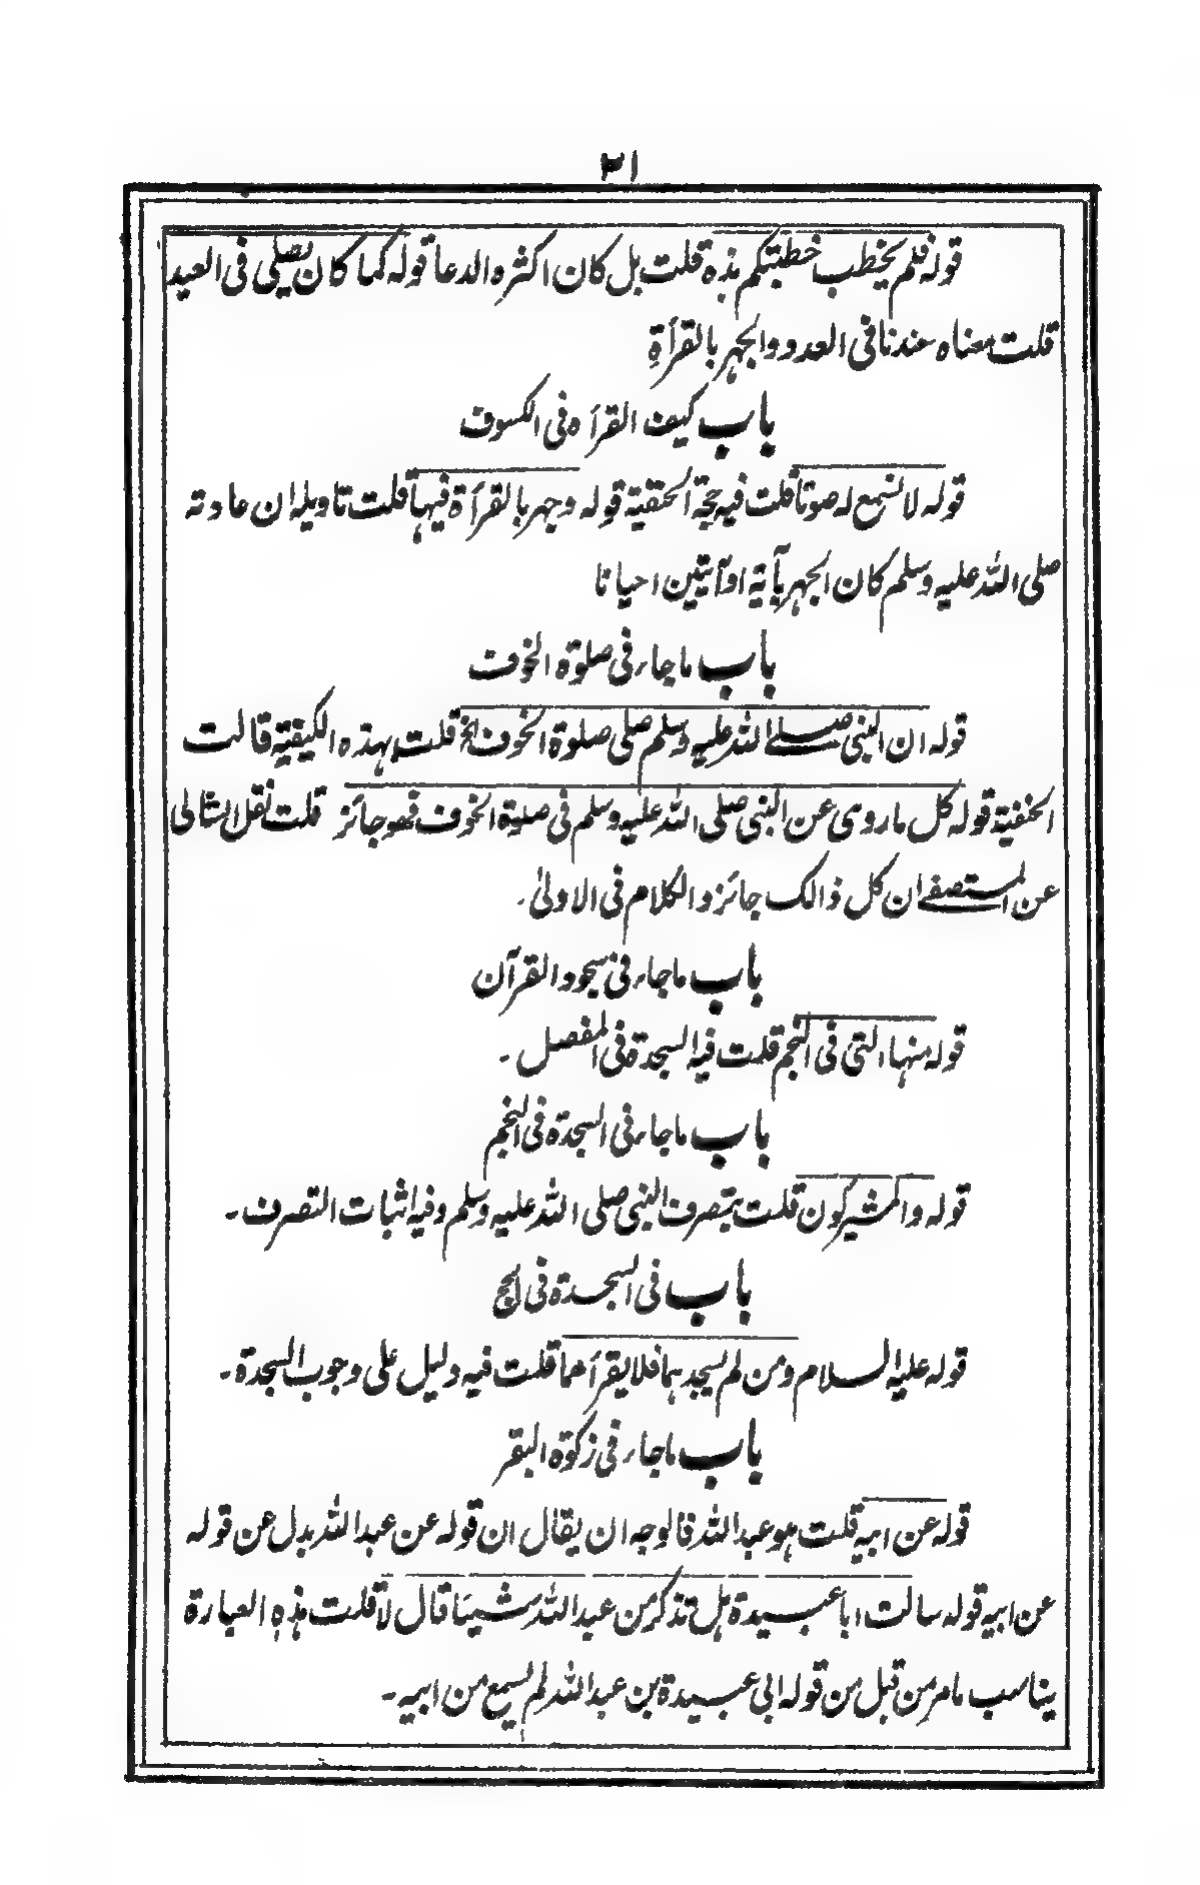 ٣١
قوله فلم يخطب خطبتكم هذه قلت بل كان اكثره الدعا قوله كما كان يصلى فى العيد
قلت معناه عندنا فى العدد والجهر بالقرأة
باب كيف القرأه فى الكسوف
قوله لا نسمع له صوتا قلت فيه حجة الحنفية قوله وجهر بالقرأة فيها قلت تاويله ان عادته
صلى الله عليه وسلم كان الجهر بآية او آيتين احيانا
باب ماجاء فى صلوة الخوف
قوله ان النبى صلے الله عليه وسلم صلى صلوة الخوف الخ قلت بهذه الكيفية قالت
الحنفية قوله كل ماروى عن النبى صلى الله عليه وسلم فى صلوة الخوف فهو جائز قلت نقل الشالى
عن المستصفے ان كل ذالك جائز والكلام فى الاولىٰ۔
باب ماجاء فى سجود القرآن
قوله منها التى فى النجم قلت فيه السجدة فى المفصل۔
باب ماجاء فى السجدة فى النجم
قوله والمشركون قلت بتصرف النبى صلى الله عليه وسلم وفيه اثبات التصرف۔
باب فى السجدة فى الحج
قوله عليه السلام ومن لم يسجد هما فلا يقرأ هما قلت فيه دليل على وجوب السجدة۔
باب ماجاء فى زكوة البقر
قوله عن ابيه قلت هو عبد الله فالوجه ان يقال ان قوله عن عبد الله بدل عن قوله
عن ابيه قوله سالت ابا عبيدة هل تذكر من عبد الله شيئا قال لا قلت هذه العبارة
يناسب مامر من قبل من قوله ابى عبيدة بن عبد الله لم يسمع من ابيه۔